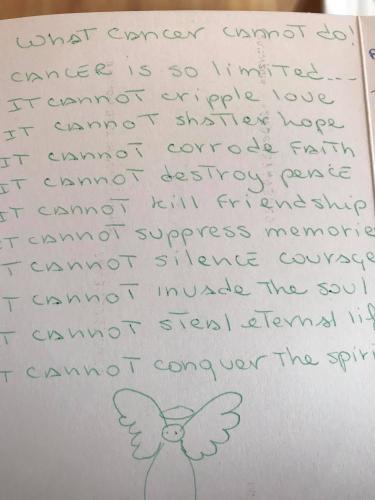 What cancer cannot do!
CANCER is so limited...
IT cannot cripple love
IT cannot shatter hope
IT cannot corrode faith
IT cannot destroy peace
IT cannot kill friendship
IT cannot suppress memorie
T cannot silence courage
T cannot invade the soul
T cannot steal eternal lif
T cannot conquer the spiri